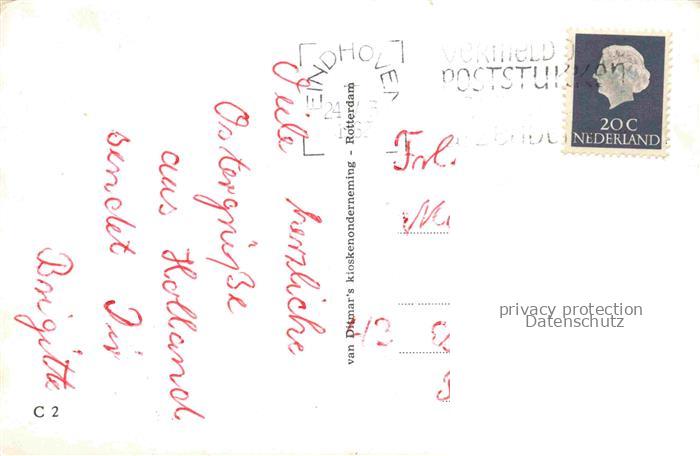 Viele herzliche
Ostergrüße
aus Holland
sendet Dir
Brigitte
C 2
van Ditmar's kioskenonderneming - Rotterdam
EINDHOVEN
VERMELD
POSTSTUKKEN
20 C
NEDERLAND
Frl.
privacy protection
Datenschutz